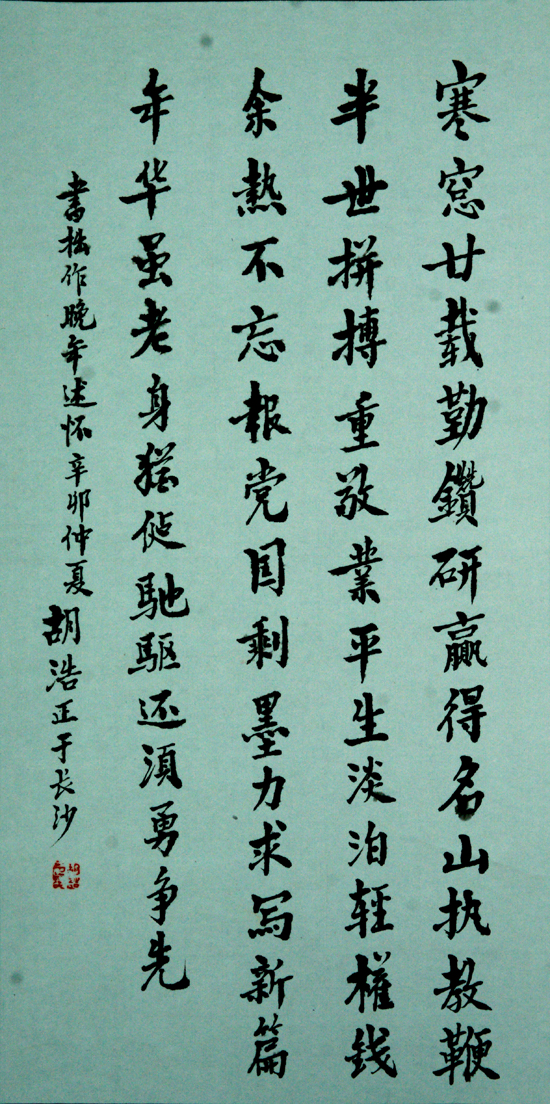 寒窓廿载勤鑽研赢得名山执教鞭
半世拼搏重敬業平生淡泊輕權錢
余熱不忘報党国剩墨力求写新篇
年华虽老身猶健馳驱还須勇争先
書拙作晚年述怀辛卯仲夏胡浩正于长沙